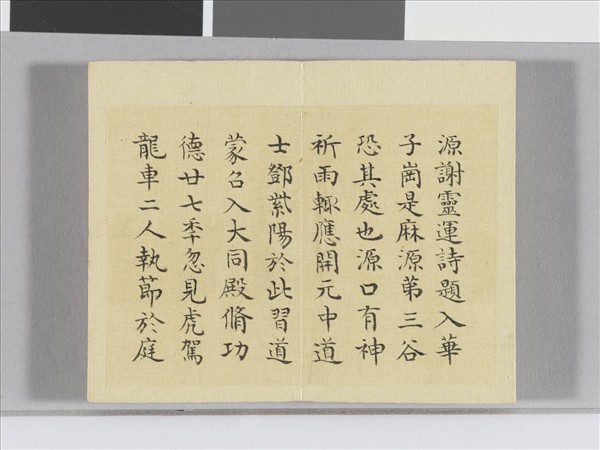 源謝靈運詩題入華
子崗是麻源苐三谷
恐其處也源口有神
祈雨輙應開元中道
士鄧紫陽於此習道
蒙召入大同殿脩功
德廿七秊忽見虎駕
龍車二人執節於庭